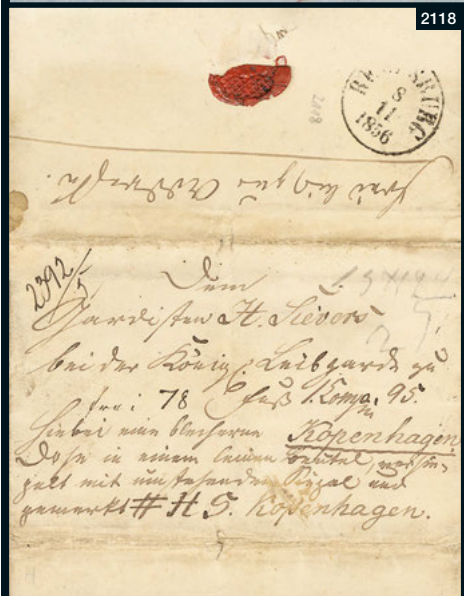 2118
8
11
1856
2392/5
Dem
Gardisten H. Sievers
bei der König: Leibgarde zu
frei 78 Fuß 1 Komp. 95.
Hiebei eine blecherne Kopenhagen
Dose in einem leinen Beutel, versie-
gelt mit umstehenden Siegel und
gemerkt # H S. Kopenhagen.